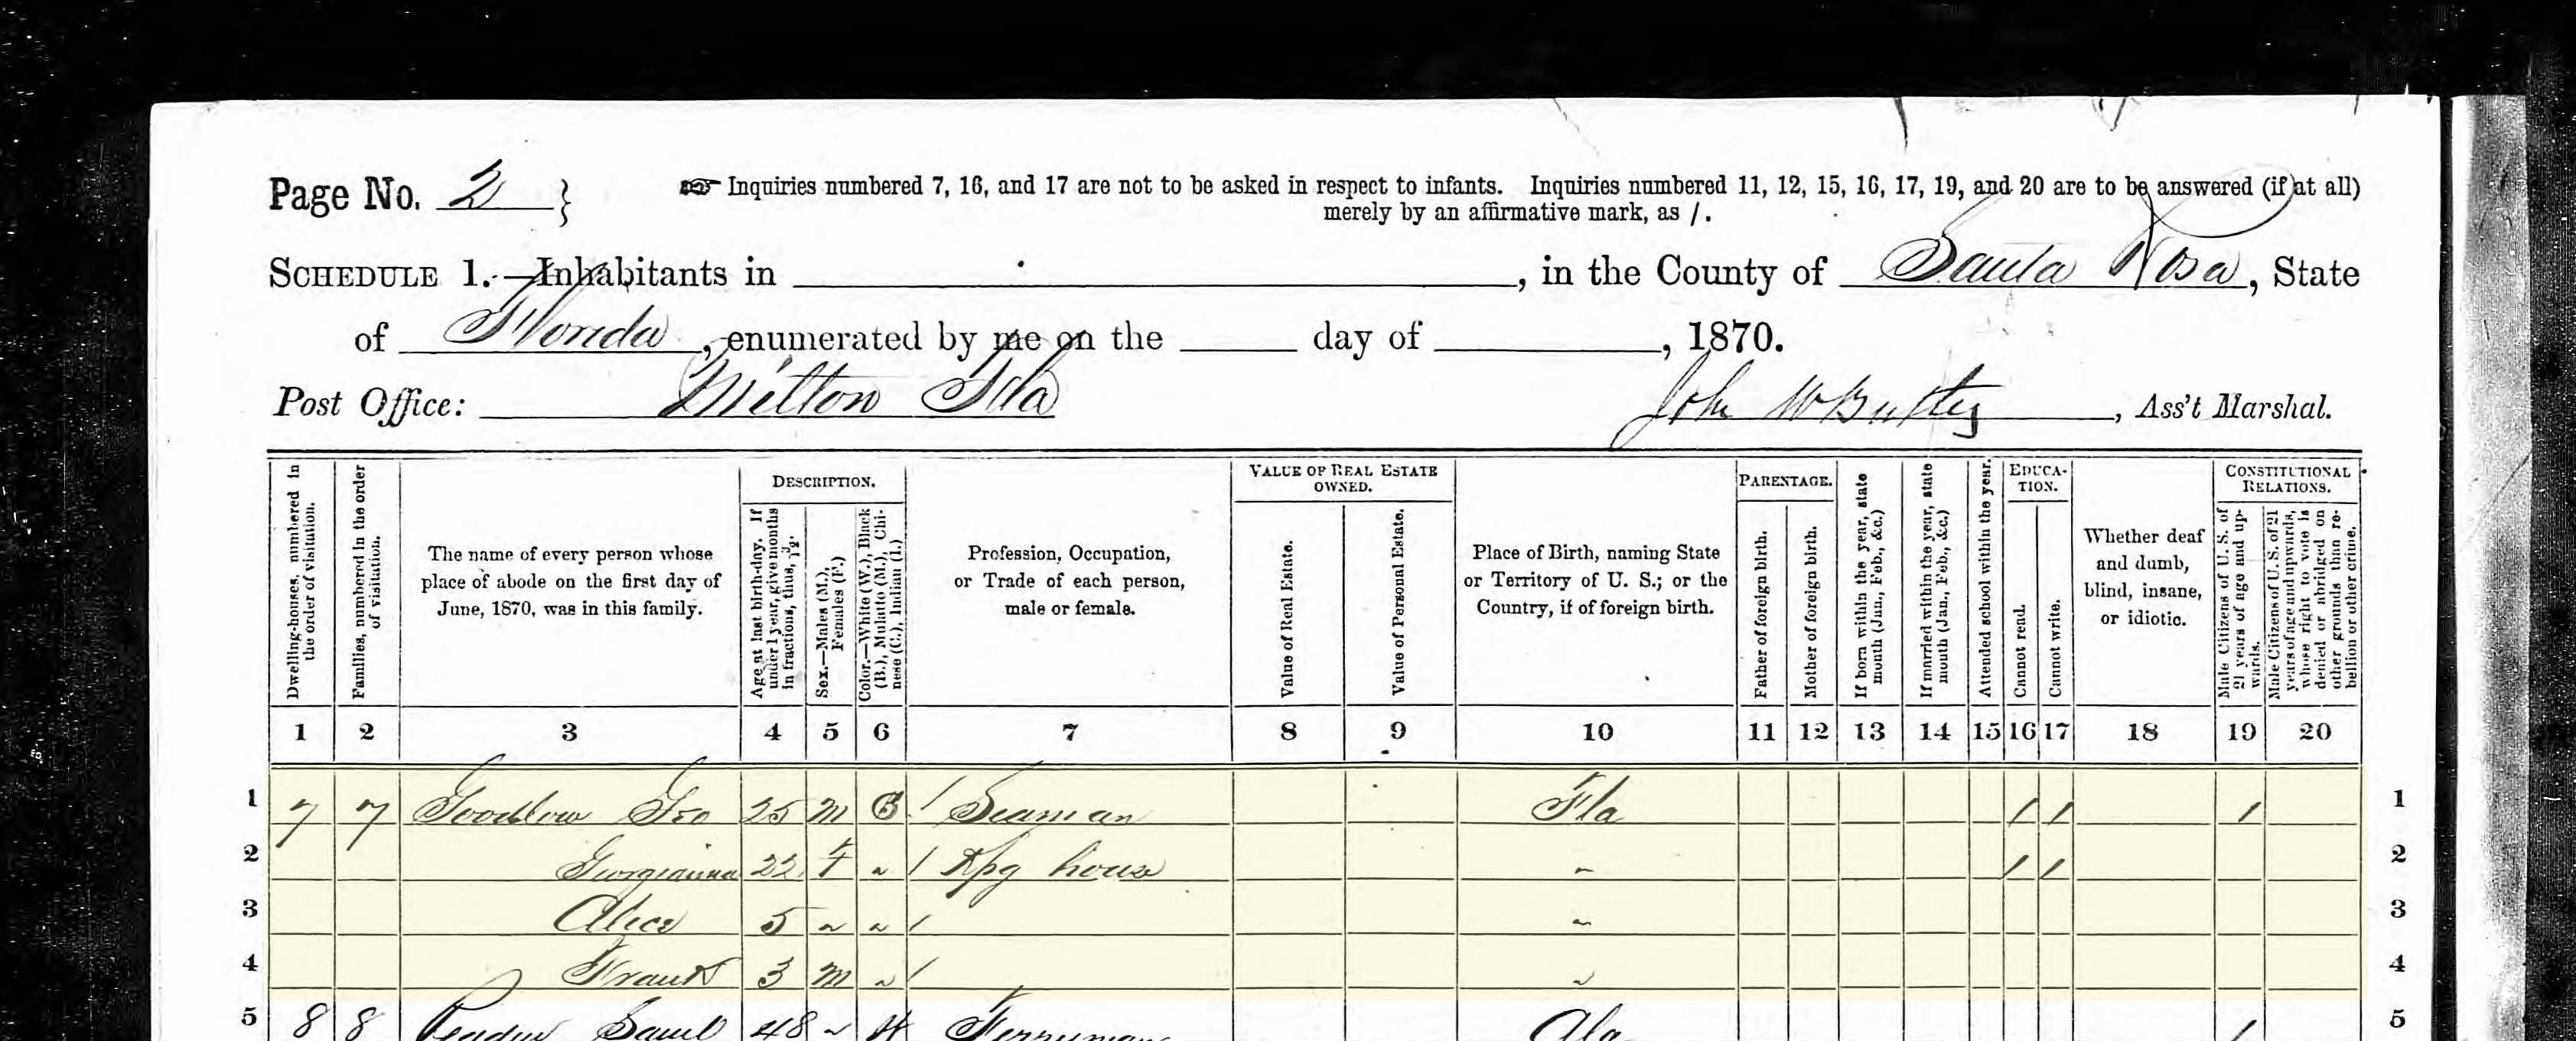 Page No. 2 }
Inquiries numbered 7, 16, and 17 are not to be asked in respect to infants. Inquiries numbered 11, 12, 15, 16, 17, 19, and 20 are to be answered (if at all)
merely by an affirmative mark, as /.
SCHEDULE 1.—Inhabitants in , in the County of Santa Rosa, State
of Florida, enumerated by me on the day of , 1870.
Post Office: Milton Fla
John W , Ass't Marshal.
Dwelling-houses, numbered in the order of visitation.
Families, numbered in the order of visitation.
The name of every person whose
place of abode on the first day of
June, 1870, was in this family.
DESCRIPTION.
Age at last birth-day. If under 1 year, give months in fractions, thus, 3/12.
Sex.—Males (M.), Females (F.)
Color.—White (W.), Black (B.), Mulatto (M.), Chinese (C.), Indian (I.)
Profession, Occupation,
or Trade of each person,
male or female.
VALUE OF REAL ESTATE
OWNED.
Value of Real Estate.
Value of Personal Estate.
Place of Birth, naming State
or Territory of U. S.; or the
Country, if of foreign birth.
PARENTAGE.
Father of foreign birth.
Mother of foreign birth.
If born within the year, state month (Jan., Feb., &c.)
If married within the year, state month (Jan., Feb., &c.)
Attended school within the year.
EDUCA-
TION.
Cannot read.
Cannot write.
Whether deaf
and dumb,
blind, insane,
or idiotic.
CONSTITUTIONAL
RELATIONS.
Male Citizens of U. S. of 21 years of age and upwards.
Male Citizens of U. S. of 21 years of age and upwards, whose right to vote is denied or abridged on other grounds than rebellion or other crime.
1 2 3 4 5 6 7 8 9 10 11 12 13 14 15 16 17 18 19 20
1 7 7 Goodlow Geo 25 M B / Seaman Fla / / / 1
2 Georgianna 22 F " / Kpg house " / / 2
3 Alice 5 " " / " 3
4 Frank 3 M " / " 4
5 8 8 Saml 48 " Ferryman Ala / 5